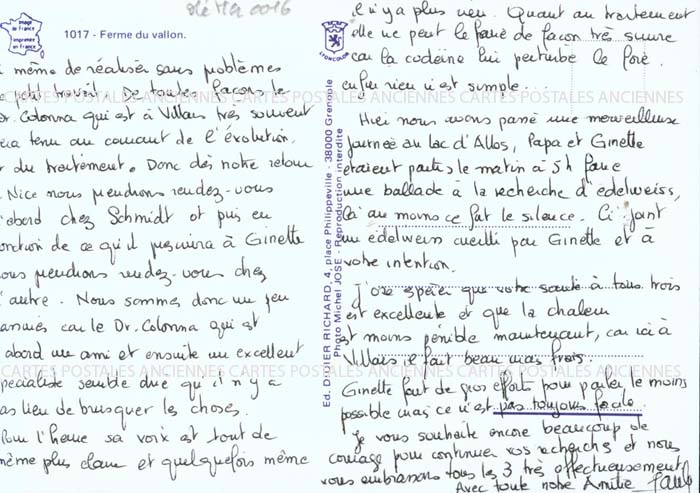 1017 - Ferme du vallon.
même de réaliser sans problèmes
petit travail. De toutes façons le
Dr. Colonna qui est à Villars très souvent
sera tenu au courant de l'évolution
du traitement. Donc dès notre retour
Nice nous prendrons rendez-vous
d'abord chez Schmidt et puis en
fonction de ce qu'il prescrira à Ginette
nous prendrons rendez-vous chez
l'autre. Nous sommes donc un peu
car le Dr. Colonna qui est
d'abord un ami et ensuite un excellent
spécialiste semble dire qu'il n'y a
pas lieu de brusquer les choses.
Pour l'heure sa voix est tout de
même plus claire et quelquefois même
Ed. DIDIER RICHARD, 4, place Philippeville - 38000 Grenoble
Photo Michel JOSE - Reproduction interdite
LYONCOLOR
Image de France
imprimée en France
il n'y a plus rien. Quant au traitement
elle ne peut le faire de façon très suivie
car la codéine lui perturbe le foie.
enfin rien n'est simple.
Hier nous avons passé une merveilleuse
journée au lac d'Allos, Papa et Ginette
étaient partis le matin à 5h faire
une ballade à la recherche d'edelweiss,
là au moins ce fut le silence. Ci-joint
un edelweiss cueilli par Ginette et à
votre intention.
J'ose espérer que votre santé à tous trois
est excellente et que la chaleur
est moins pénible maintenant, car ici à
Villars il fait beau mais frais.
Ginette fait de gros efforts pour parler le moins
possible mais ce n'est pas toujours facile.
Je vous souhaite encore beaucoup de
courage pour continuer vos recherches et nous
vous embrassons tous les 3 très affectueusement
Avec toute notre Amitié
CARTES POSTALES ANCIENNES CARTES POSTALES ANCIENNES
CARTES POSTALES ANCIENNES CARTES POSTALES ANCIENNES